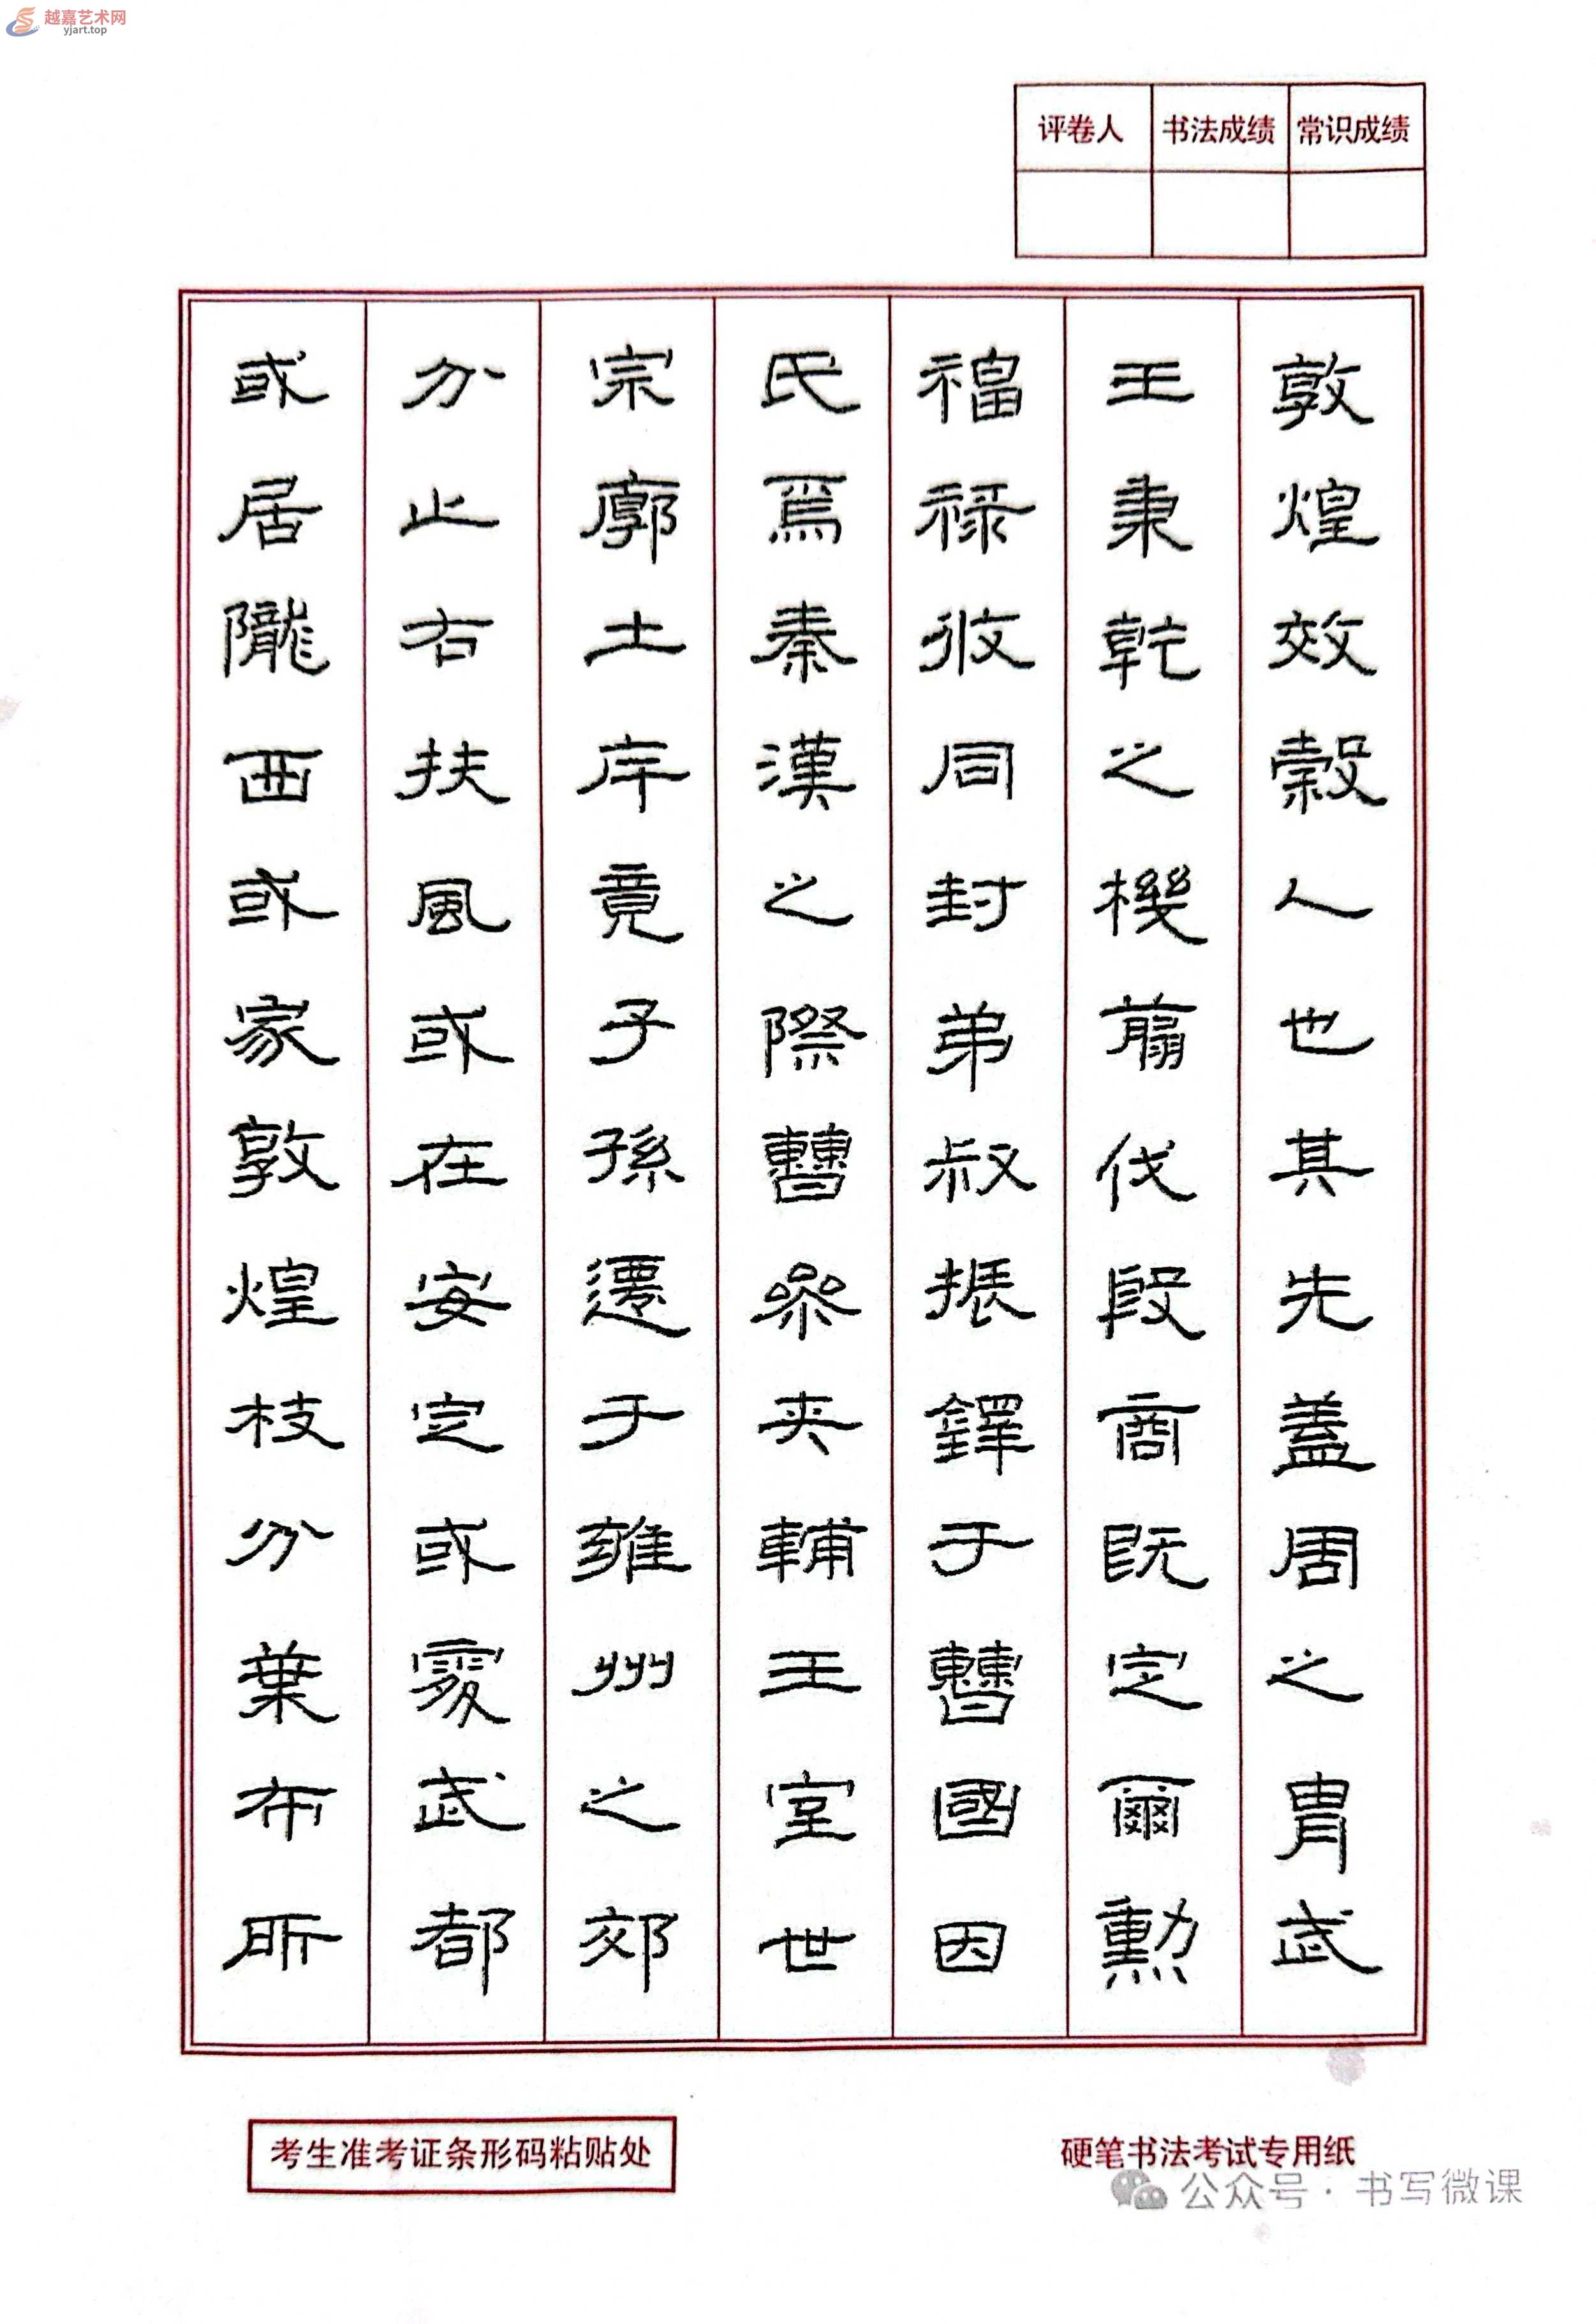 越嘉艺术网
yjart.top
评卷人 书法成绩 常识成绩
敦煌效穀人也其先蓋周之胄武
王秉乾之機翦伐殷商既定爾勳
福祿攸同封弟叔振鐸于曹國因
氏焉秦漢之際曹參夾輔王室世
宗廓土斥竟子孫遷于雍州之郊
分止右扶風或在安定或處武都
或居隴西或家敦煌枝分葉布所
考生准考证条形码粘贴处
硬笔书法考试专用纸
公众号·书写微课